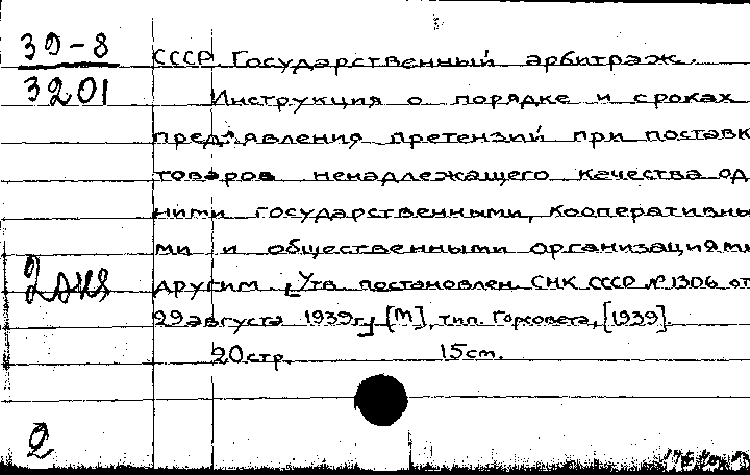 39-8
3201
СССР. Государственный арбитраж.
Инструкция о порядке и сроках
пред"явления претензий при поставк
товаров ненадлежащего качества од
ними государственными, кооперативны
ми и общественными организациями
другим. [Утв. постановлен. СНК СССР № 1306 от
29 августа 1939г.] [М], тип. Горсовета, [1939].
20 стр. 15 см.
2 экз
2